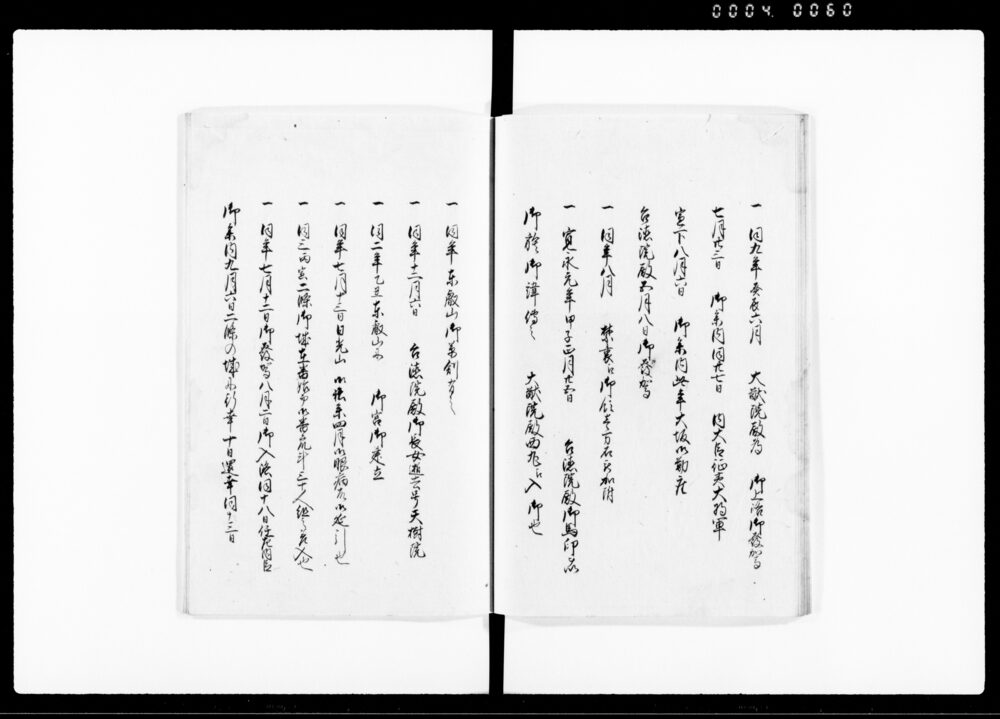 0004 0060
一 同九年癸亥六月 大猷院殿為 御上洛御發駕
七月廿三日 御参内同廿七日 内大臣征夷大将軍
宣下八月六日 御参内此年大坂御勤座
台徳院殿 月八日御發駕
一 同年八月 禁裏江御領壱万石被加附
一 寛永元年甲子正月 台徳院殿御馬印
御 御譲 大猷院殿西丸江入御也
一 同年東叡山御草創有之
一 同年十二月六日 台徳院殿御長女逝去号天樹院
一 同二年乙丑東叡山ニ 御宮御建立
一 同年七月十三日日光山 御社参四月御眼病故御延引也
一 同三丙寅二條御城在番 三十人 入也
一 同年七月十二日御發駕八月二日御入洛同十八日任左大臣
御参内九月六日二條の城ニ行幸十日還幸同十三日